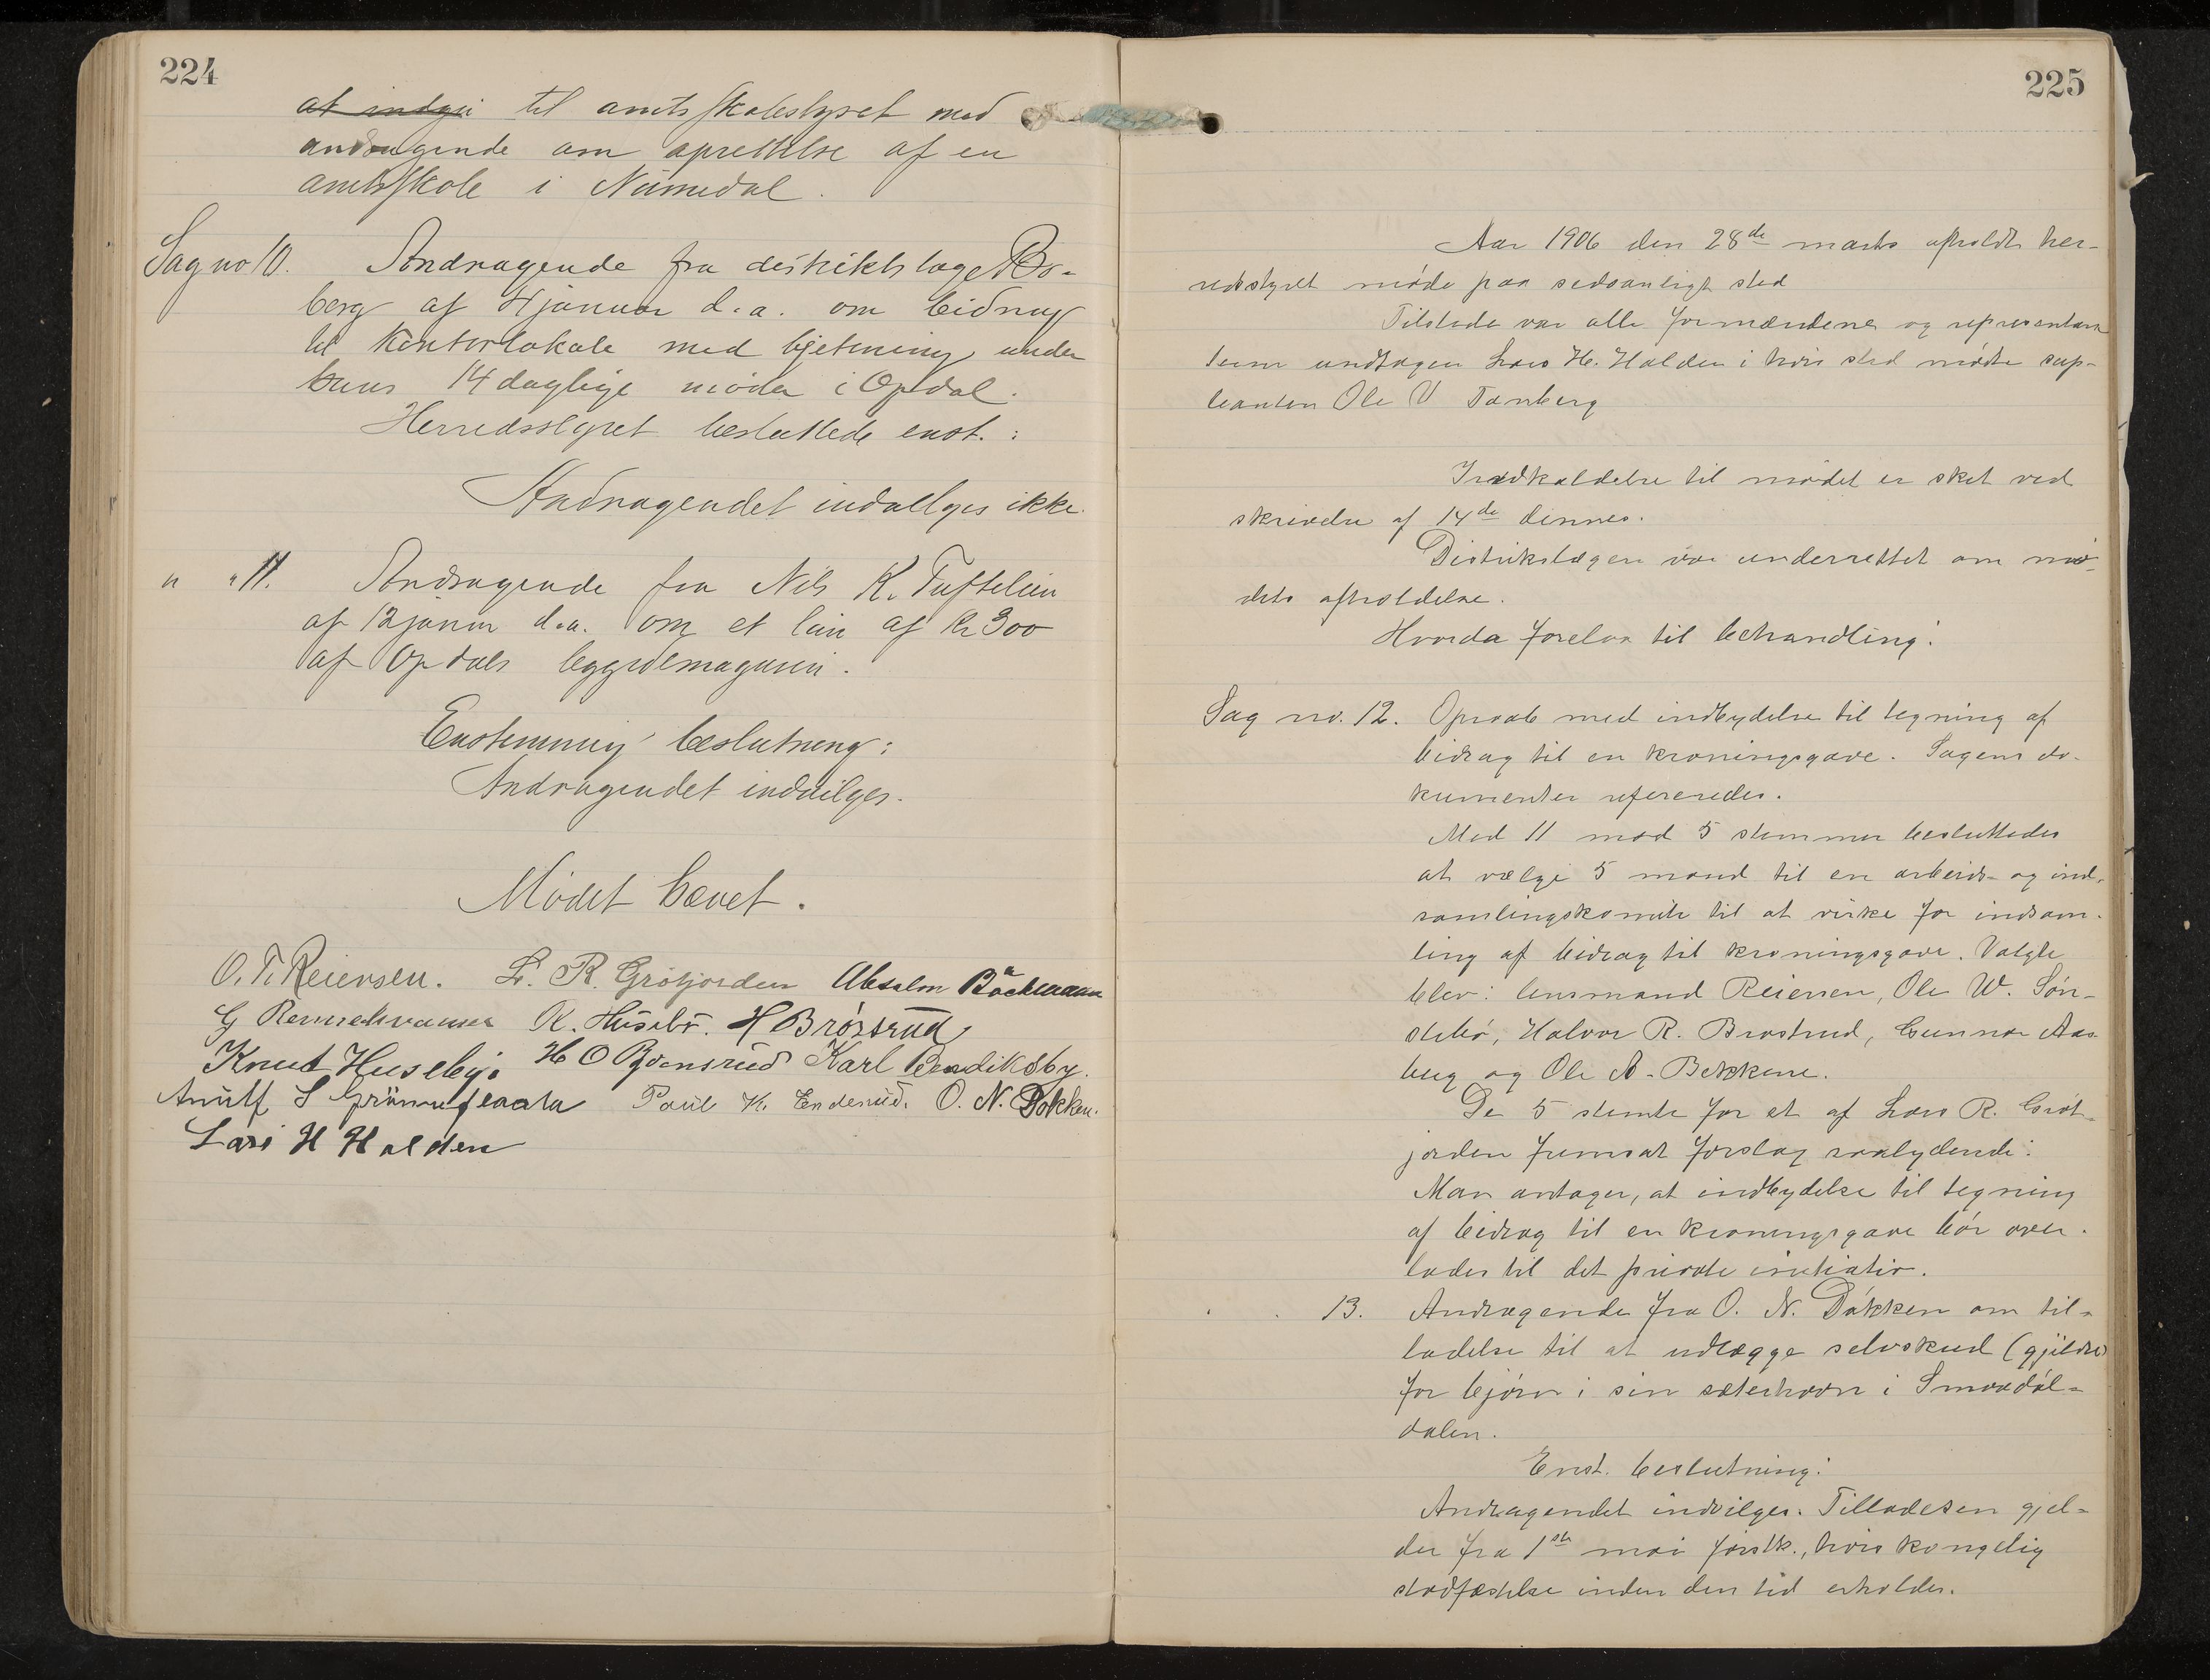 224
at indgå til amtsskolestyret med
andragende om oprettelse af en
amtsskole i Numedal.
Sag no 10. Andragende fra distriktslæge Ros-
berg af 4 januar d.a. om bidrag
til kontorlokale med betjening under
hans 14 daglige møder i Opdal.
Herredsstyret besluttede enst. :
Andragendet indvilges ikke.
" " 11. Andragende fra Nils K. Tuftelien
af 12 januar d.a. om et lån af kr 300
af Opdals bygdemagasin.
Enstemmig beslutning:
Andragendet indvilges.
Mødet hævet.
O. T. Reiersen. L. R. Grøtjorden Absalon Bäckmann
G K. Husebø. H Brøstrud
Knut Huseby. H O Bjørnsrud Karl Bendiksby.
S Paul K. Enderud. O. N. Dokken.
Lars H Halden
225
Aar 1906 den 28de marts afholdt her-
redsstyret møde paa sedvanligt sted
Tilstede var alle formændene og repræsentan-
terne undtagen Lars H. Halden i hvis sted mødte sup-
leanten Ole O Tanberg
Indkaldelse til mødet er sket ved
skrivelse af 14de dennes.
Distrikslægen var underrettet om mø-
dets afholdelse.
Hvorda forelaa til behandling:
Sag no. 12. Opraab med indbydelse til tegning af
bidrag til en kroningsgave. Sagens do-
kumenter refereredes.
Med 11 mod 5 stemmer besluttedes
at vælge 5 mand til en arbeids- og ind-
samlingskomite til at virke for indsam-
ling af bidrag til kroningsgave. Valgte
blev: lensmand Reiersen, Ole W. Søn-
stebø, Halvor R. Brøstrud, Gunnar Aas-
berg og Ole A. Bekkene.
De 5 stemte for et af Lars R. Grøt-
jorden fremsat forslag saalydende:
Man antager, at indbydelse til tegning
af bidrag til en kroningsgave bør over-
lades til det private initiativ.
" " 13. Andragende fra O. N. Dokken om til-
ladelse til at udlægge selvskud (gjildre)
for bjørn i sin sæterhavn i Smaadøl-
dalen.
Enst. beslutning:
Andragendet indvilges. Tilladesen gjel-
der fra 1ste mai førstk., hvis kongelig
stadfæstelse inden den tid erholdes.